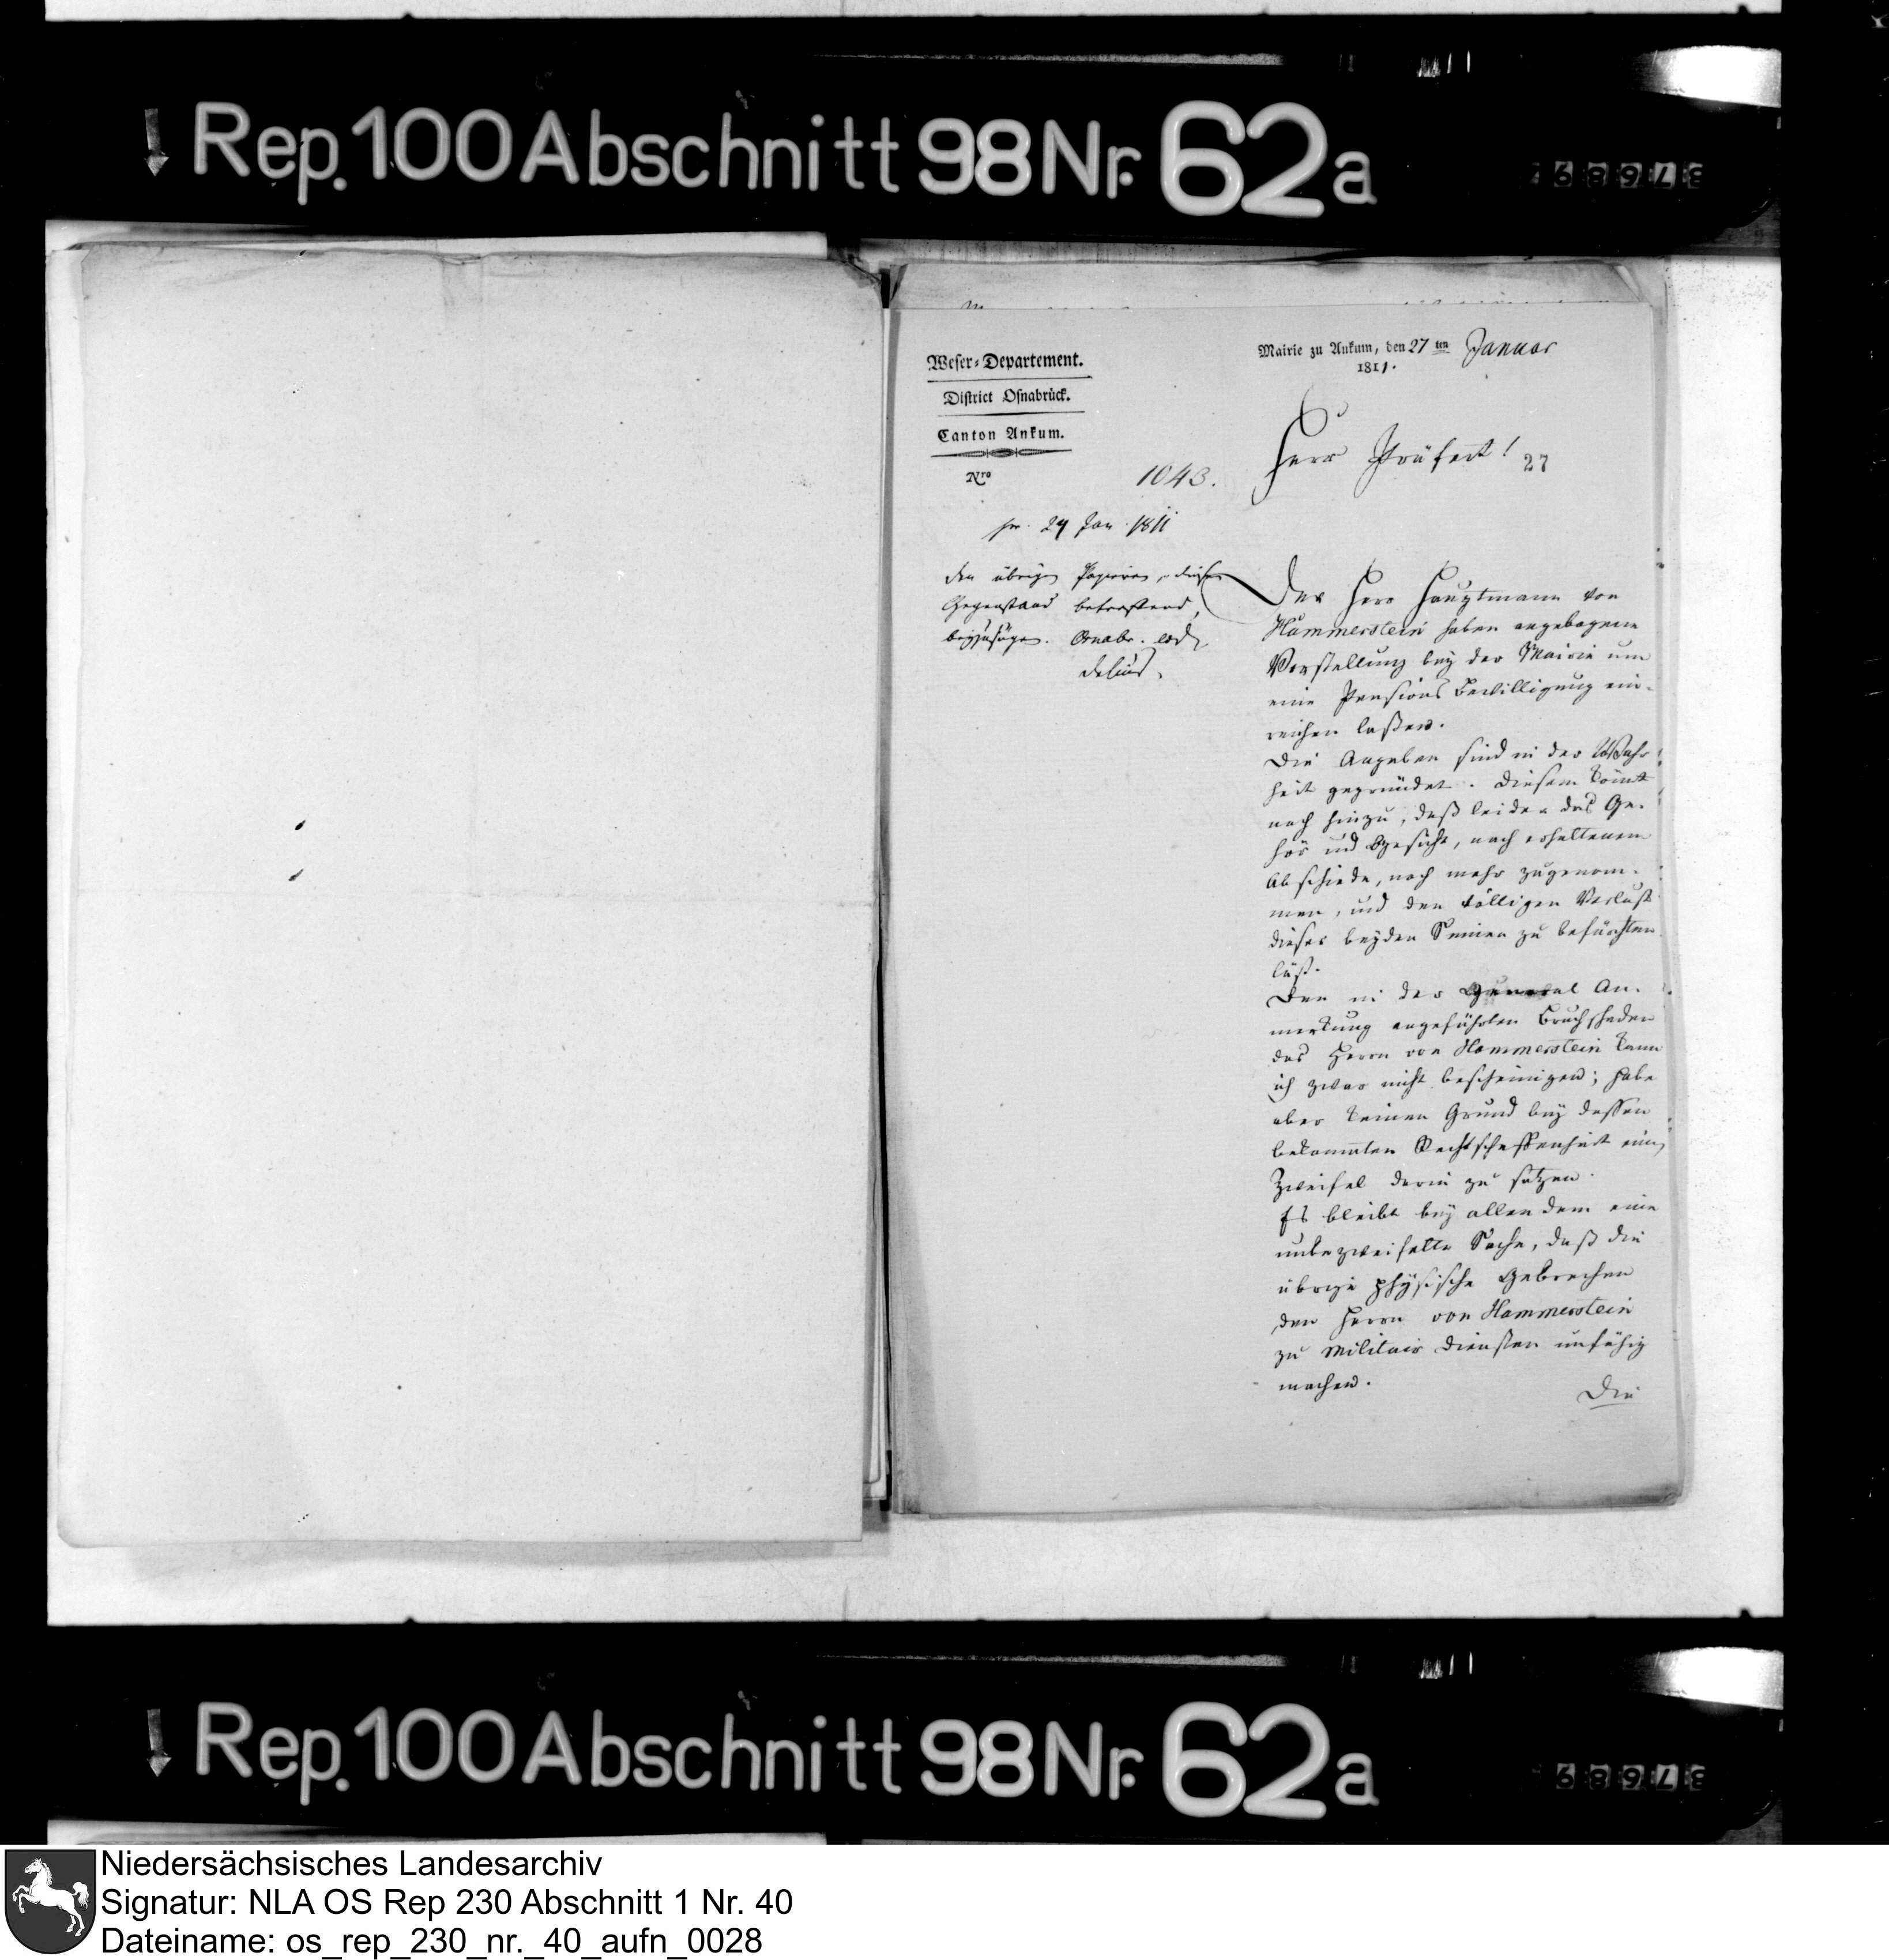 Rep. 100 Abschnitt 98 Nr. 62a
Weser-Departement.
District Osnabrück.
Canton Ankum.
Nro
1043.
pr. 29 Jan. 1811
den übrigen Papieren, diesen
Gegenstand betreffend,
beyzufügen. Osnabr. eod.
Delius.
Mairie zu Ankum, den 27 ten Januar
1811.
Herr Präfect!
27
Der Herr Hauptmann von
Hammerstein haben angebogene
Vorstellung bey der Mairie um
eine Pensions Bewilligung ein-
reichen laßen.
Die Angaben sind in der Wahr-
heit gegründet. Diesem kömt
noch hinzu, daß leider das Ge-
hör und Gesicht, nach erhaltenem
Abschiede, noch mehr zugenom-
men, und den völligen Verlust
dieser beyden Sinnen zu befürchten
läßt.
Den in der General An-
merkung angeführten Bruchschaden
des Herrn von Hammerstein kann
ich zwar nicht bescheinigen; habe
aber keinen Grund bey dessen
bekannten Rechtschaffenheit einen
Zweifel darin zu setzen.
Es bleibt bey allen dem eine
unbezweifelte Sache, daß die
übrige physische Gebrechen
den Herrn von Hammerstein
zu Militair Diensten unfähig
machen.
Die
Rep. 100 Abschnitt 98 Nr. 62a
Niedersächsisches Landesarchiv
Signatur: NLA OS Rep 230 Abschnitt 1 Nr. 40
Dateiname: os_rep_230_nr._40_aufn_0028